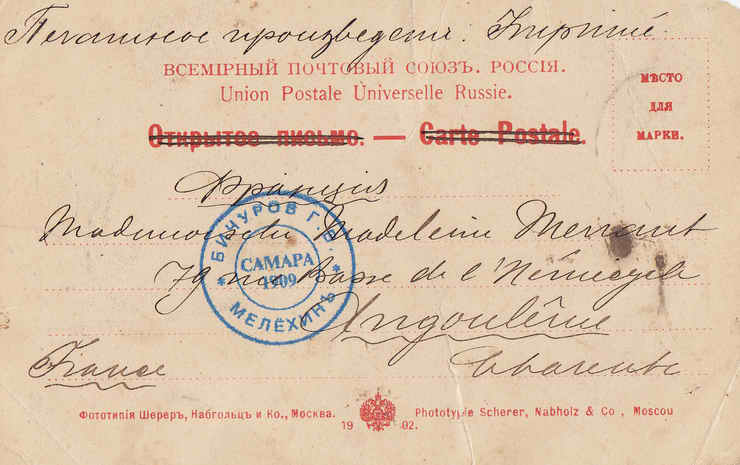 Печатное произведен. Imprimé.
ВСЕМІРНЫЙ ПОЧТОВЫЙ СОЮЗЪ. РОССІЯ.
Union Postale Universelle Russie.
МѢСТО
ДЛЯ
МАРКИ.
Открытое письмо. — Carte Postale.
Франція
Mademoiselle Madeleine
БИЧУРОВ Г.В.
САМАРА
1909
* МЕЛЁХИНЪ *
79 rue Basse de l'
Angoulême
France
Charente
Фототипія Шереръ, Набгольцъ и Ко., Москва.
Phototypie Scherer, Nabholz & Co, Moscou
19 02.